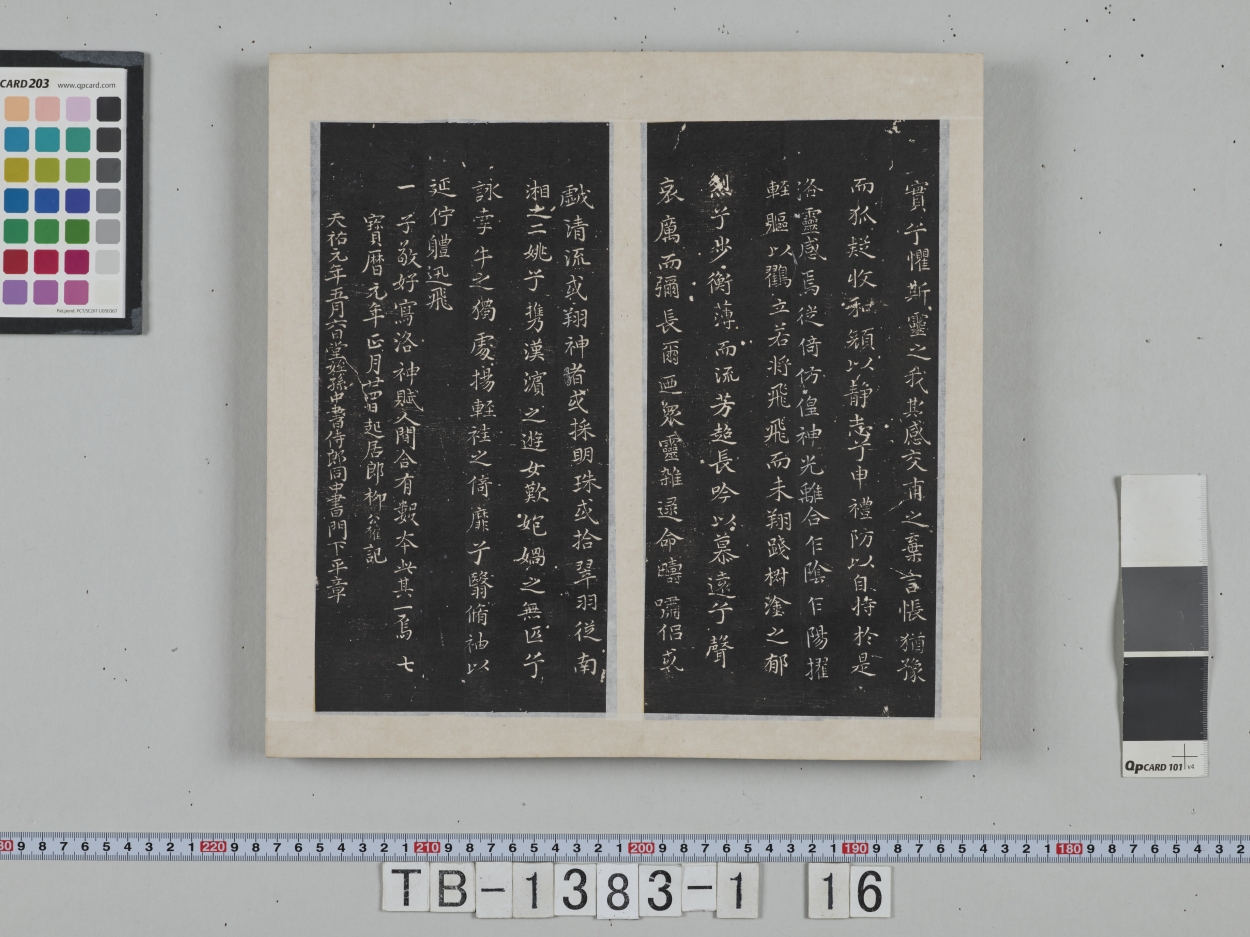 實兮懼斯靈之我其感交甫之棄言悵猶豫
而狐疑收和顏以靜志兮申禮防以自持於是
洛靈感焉徙倚仿偟神光離合乍陰乍陽擢
軽軀以鸖立若將飛飛而未翔踐椒塗之郁
烈兮步衡薄而流芳超長吟以慕遠兮聲
哀厲而彌長爾迺眾靈雜逯命疇嘯侶或
戲清流或翔神渚或採明珠或拾翠羽從南
湘之二姚兮攜漢濱之遊女歎匏媧之無匹兮
詠牽牛之獨處揚軽袿之倚靡兮翳脩袖以
延佇軆迅飛
一子敬好寫洛神賦人間合有數本此其一焉 七
寳曆元年正月廿四日起居郎柳公權記
天祐元年五月六日堂姪孫中書侍郎同中書門下平章
CARD 203 www.qpcard.com
QPCARD 101 v4
80 9 8 7 6 5 4 3 2 1 220 9 8 7 6 5 4 3 2 1 210 9 8 7 6 5 4 3 2 1 200 9 8 7 6 5 4 3 2 1 190 9 8 7 6 5 4 3 2 1 180 9 8 7 6 5 4 3 2
TB-1383-1 16